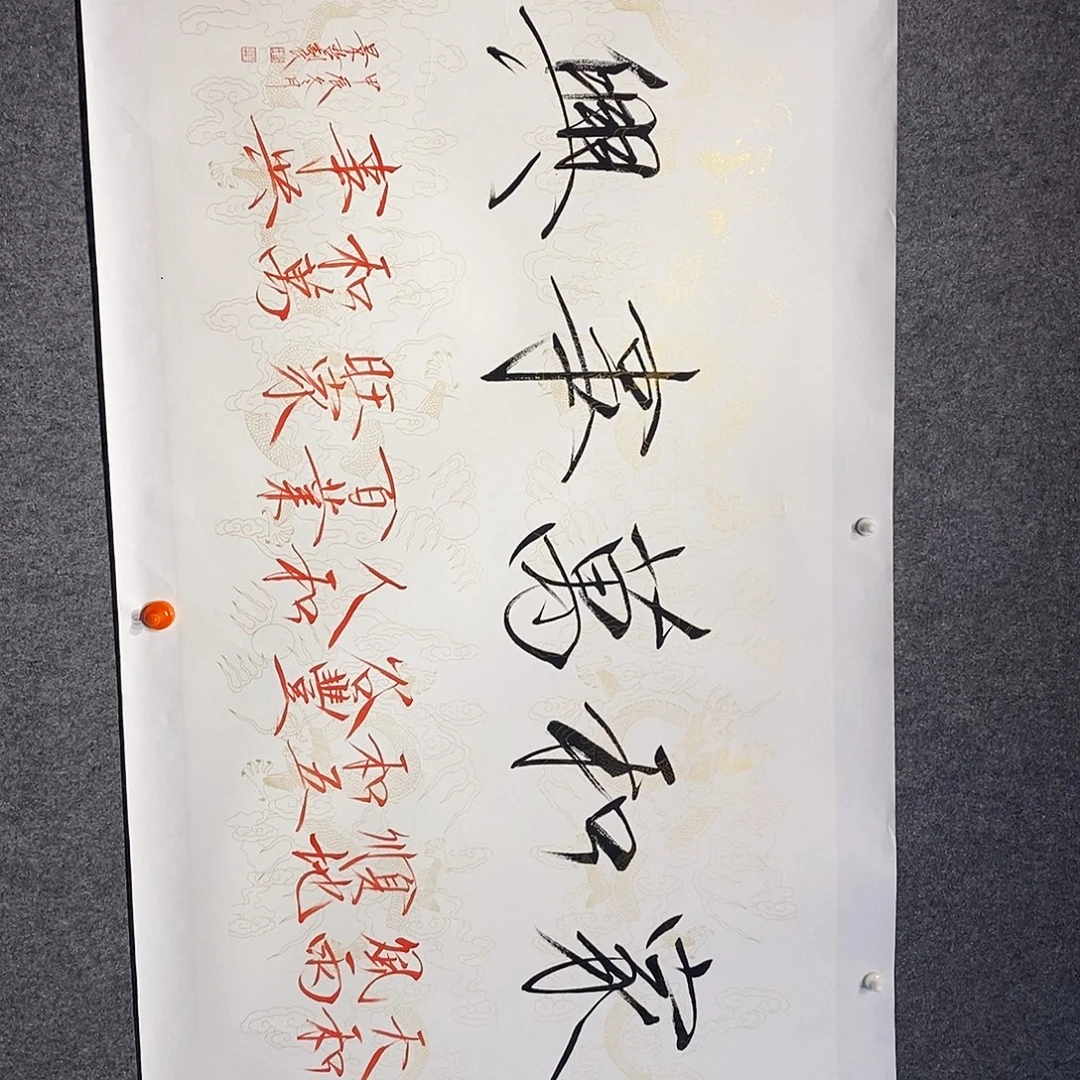 家和萬事興
天和
風雨
順地
和五
谷豐登
人和
百業
旺家
和萬
事興
甲辰冬月